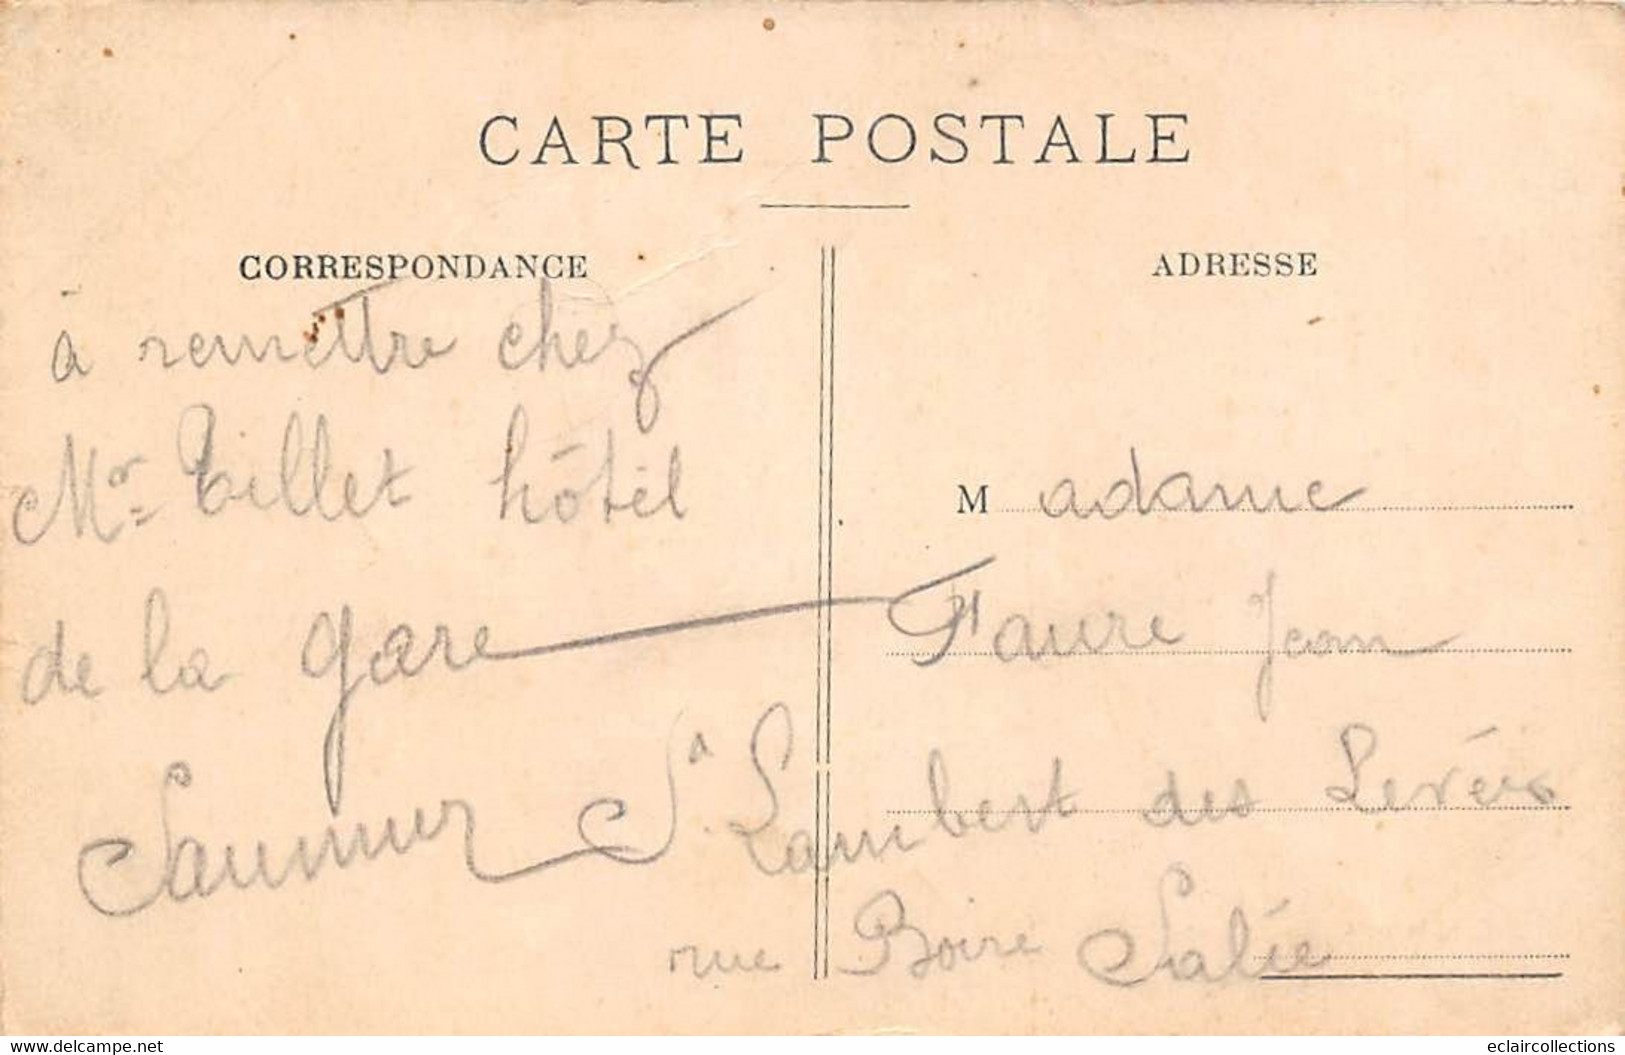 CARTE POSTALE
CORRESPONDANCE
à remettre chez
Mr Tillet hôtel
de la gare
Saumur
ADRESSE
Madame
Faure Jean
St Lambert des Levées
rue Boire Salée
delcampe.net
eclaircollections